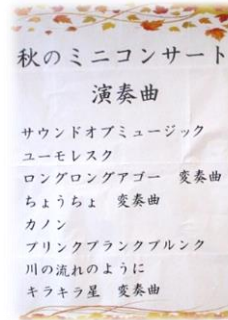 秋のミニコンサート
演奏曲
サウンドオブミュージック
ユーモレスク
ロングロングアゴー　変奏曲
ちょうちょ　変奏曲
カノン
プリンクプランクプルンク
川の流れのように
キラキラ星　変奏曲